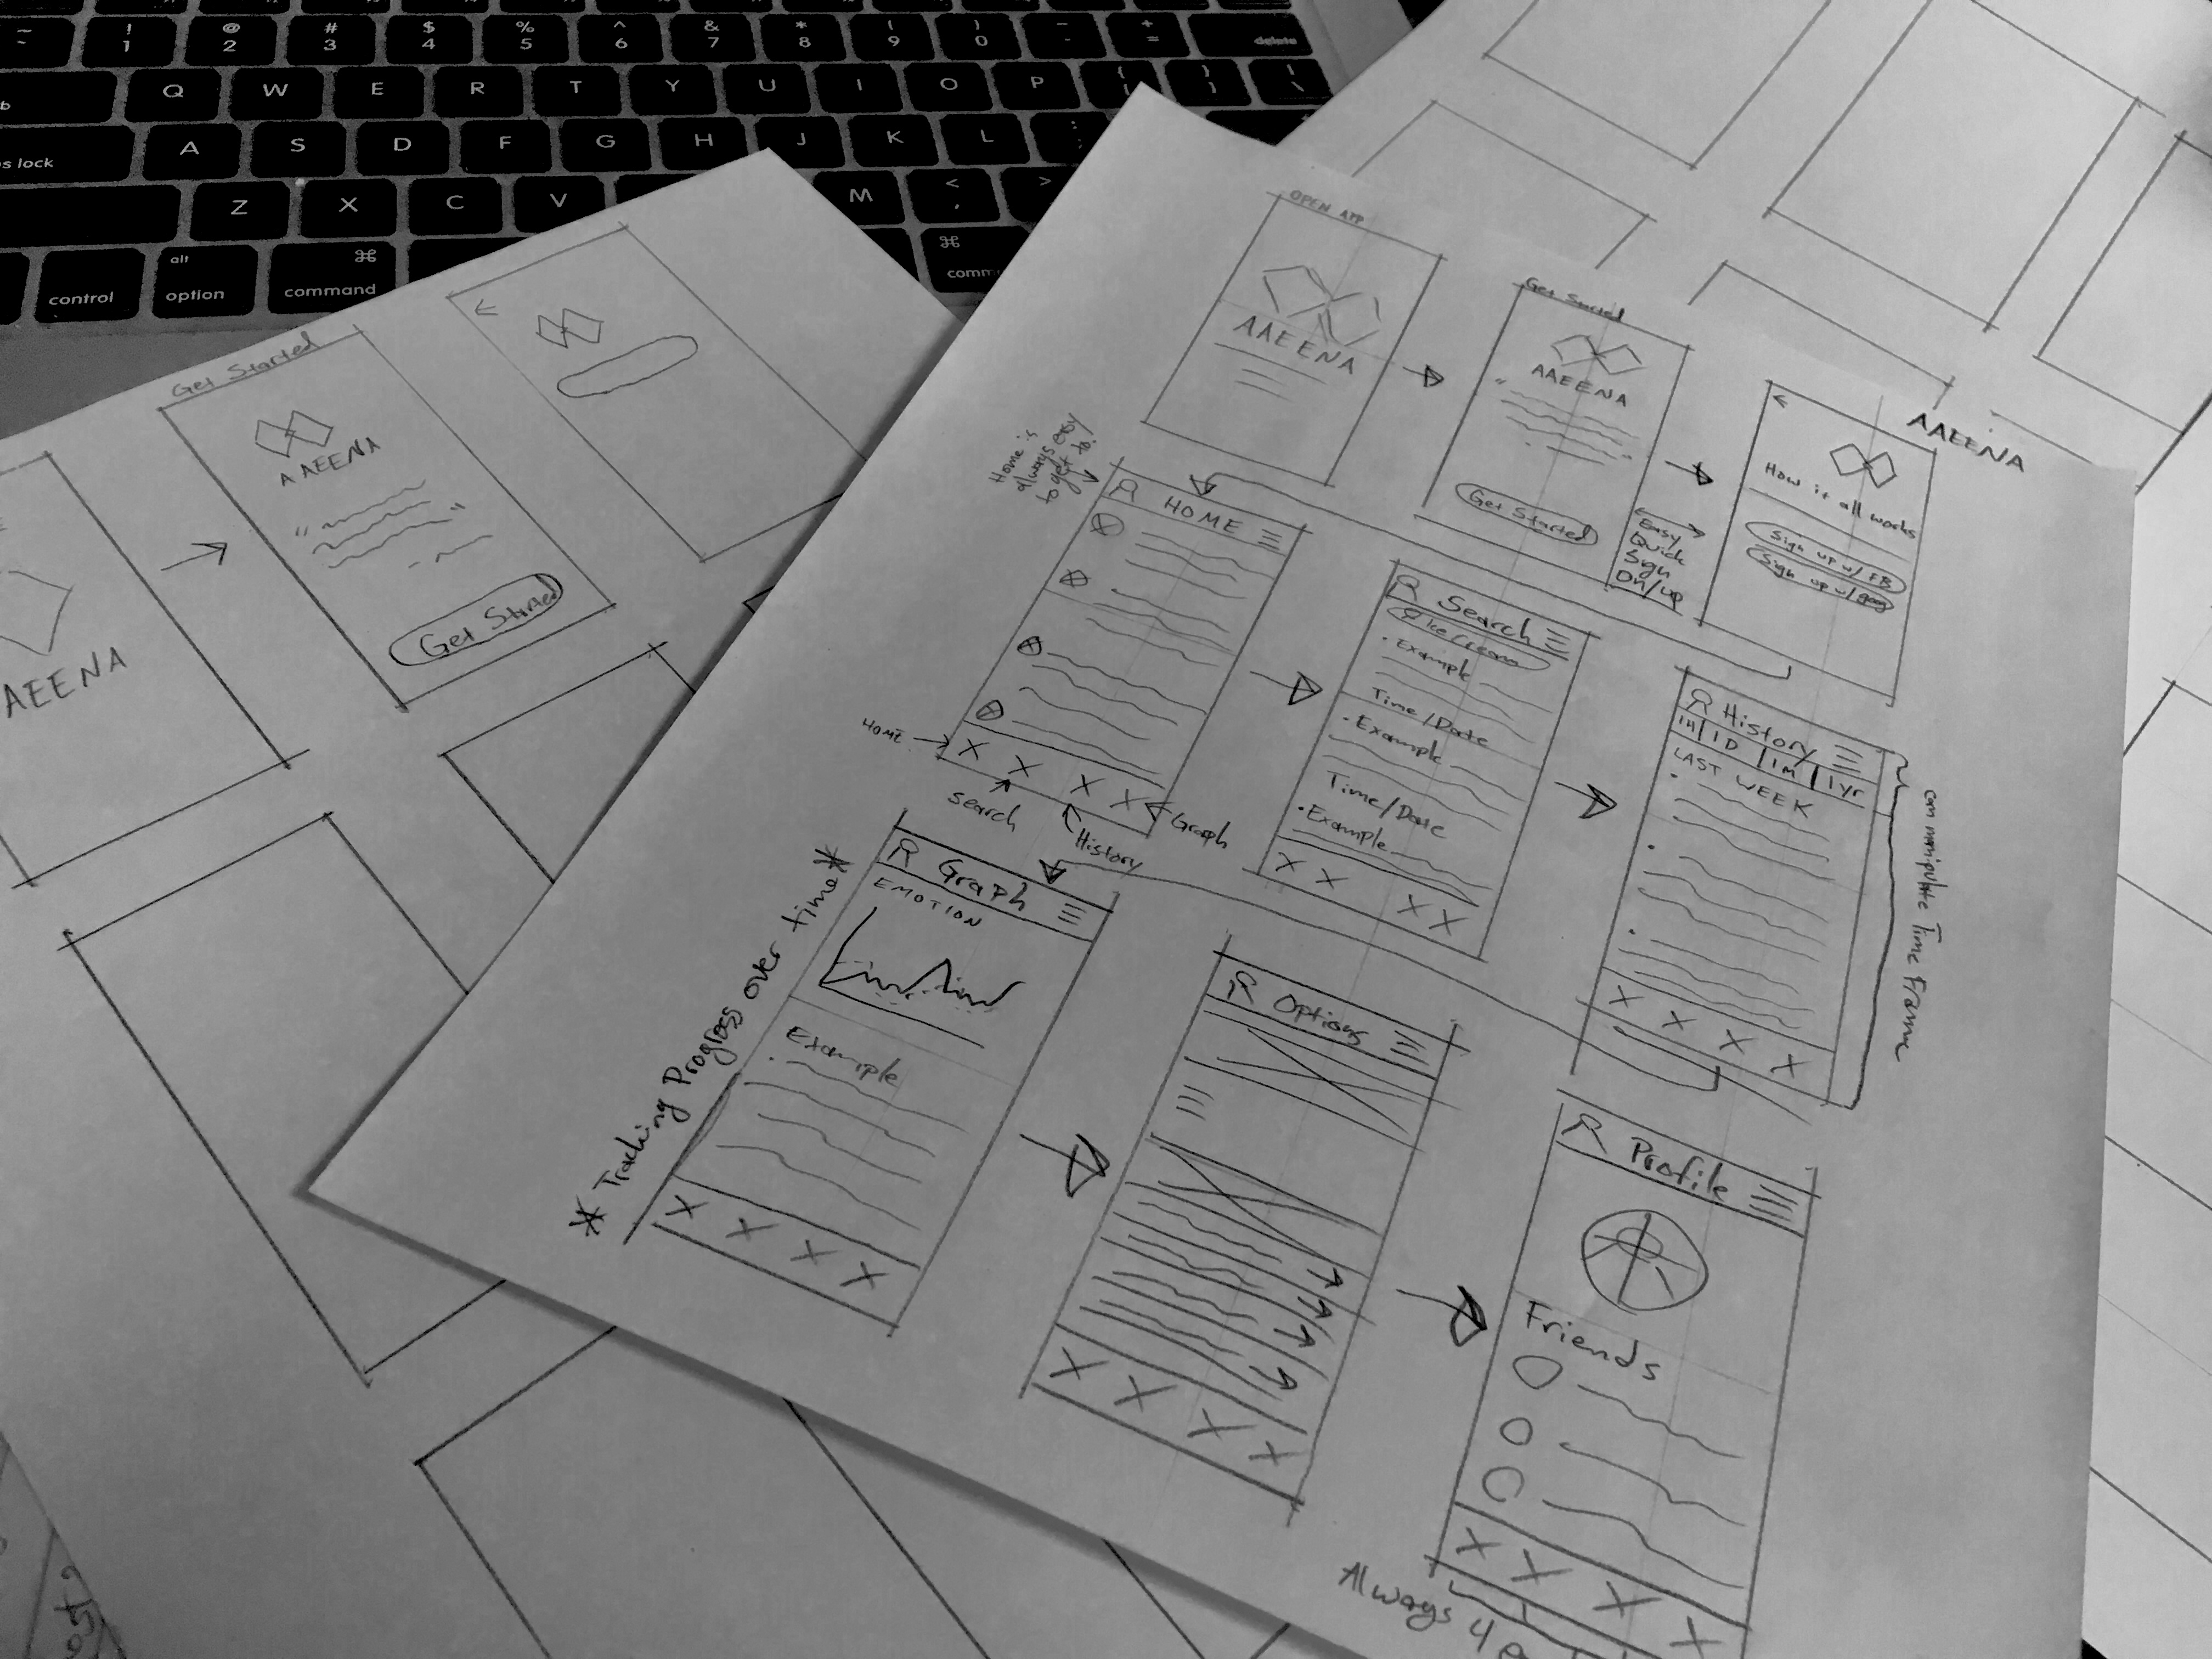 ~ ! @ # $ % ^ & * ( ) _ + delete
` 1 2 3 4 5 6 7 8 9 0 - =
b Q W E R T Y U I O P { } |
[ ] \
s lock A S D F G H J K L : ;
Z X C V M < , >
control alt option ⌘ command ⌘ comm
AEENA
Get Started
AAEENA
Get Started
AAEENA
OPEN APP
AAEENA
Get Started
AAEENA
Get Started
Easy
Quick
Sign
On/up
How it all works
Sign up w/ FB
Sign up w/ goog
Home is
always easy
to get to.
HOME
HOME
Search
History
Graph
Search
Ice Cream
Example
Time/Date
Example
Time/Date
Example
History
1H/1D/1M/1yr
LAST WEEK
can manipulate Time Frame
* Tracking Progress over time *
Graph
EMOTION
Example
Options
Profile
Friends
Always 4